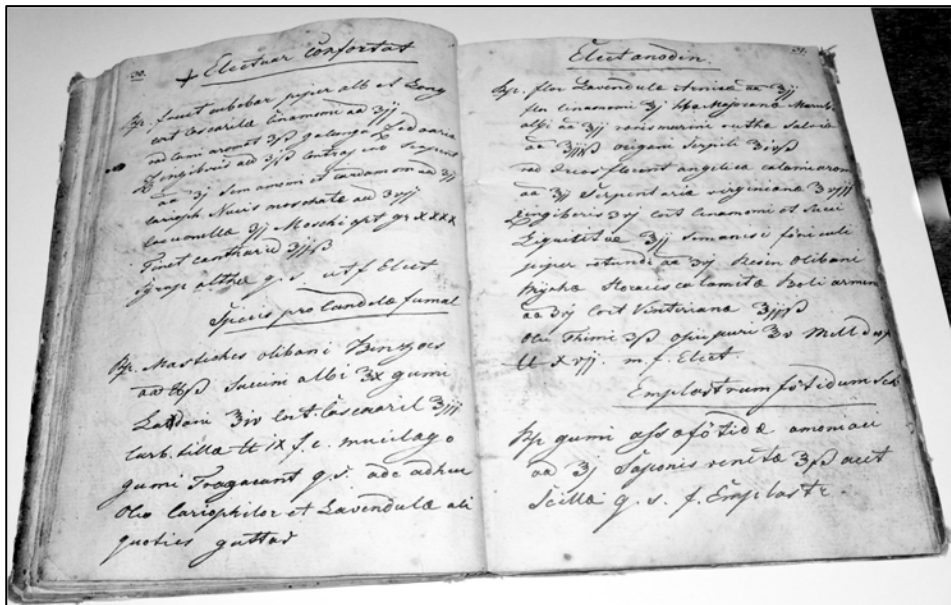 30.
+ Electuar confortat
Rp. fruct cubebar piper alb et Long
cort cascarilæ Cinamomi aa ʒjj
rad Cami aromat ʒjß galanga Zedoaria
Zingiberis aa ʒjß contraj
aa ʒj Sem amomi et Cardamom aa ʒjj
carioph. Nucis moschatæ aa ʒvjj
ʒjj Moschi opt gr XXXX
Tinct cantharid ʒjjß
Syrup altheæ q. s. ut f Elect
Speciis pro Candelæ fumal
Rp. Mastiches olibani Benzoes
aa ℔ß Succini albi ʒx gumi
Laddani ʒiv cort. Cascaril ʒjjj
Carb. tillæ ℔ ix f. c. mucilago
gumi Tragacant q. s. ade adhuc
Oleo Cariophilor et Lavendulæ ali
quoties guttas
31.
Elect anodin.
Rp. flor Lavendulæ aa ʒjj
flor Cinamomi ʒj hba Majorana Marub.
albi aa ʒjj rorismarini ruthæ Salviæ
aa ʒjjjß origani Serpili ʒivß
rad Ireos florent angelica calami arom
aa ʒjj Serpentaria virginiana ʒvjjj
Zingiberis ʒvj cort Cinamomi et Succi
Liquiritiæ ʒjj Sem anisi föniculi
piper rotundi aa ʒvj Resin Olibani
Myrhæ Storacis calamitæ Boli armen
aa ʒvj Cort Vintiriana ʒjjjß
Oleu Thimi ʒß opii puri ʒv Mell
℔ X vjj. m. f. Elect.
Emplastrum fötidum Sch
Rp gumi assafötidæ amoniac
aa ʒj Saponis venetæ ʒjß acet
Scillæ q. s. f. Emplastr.